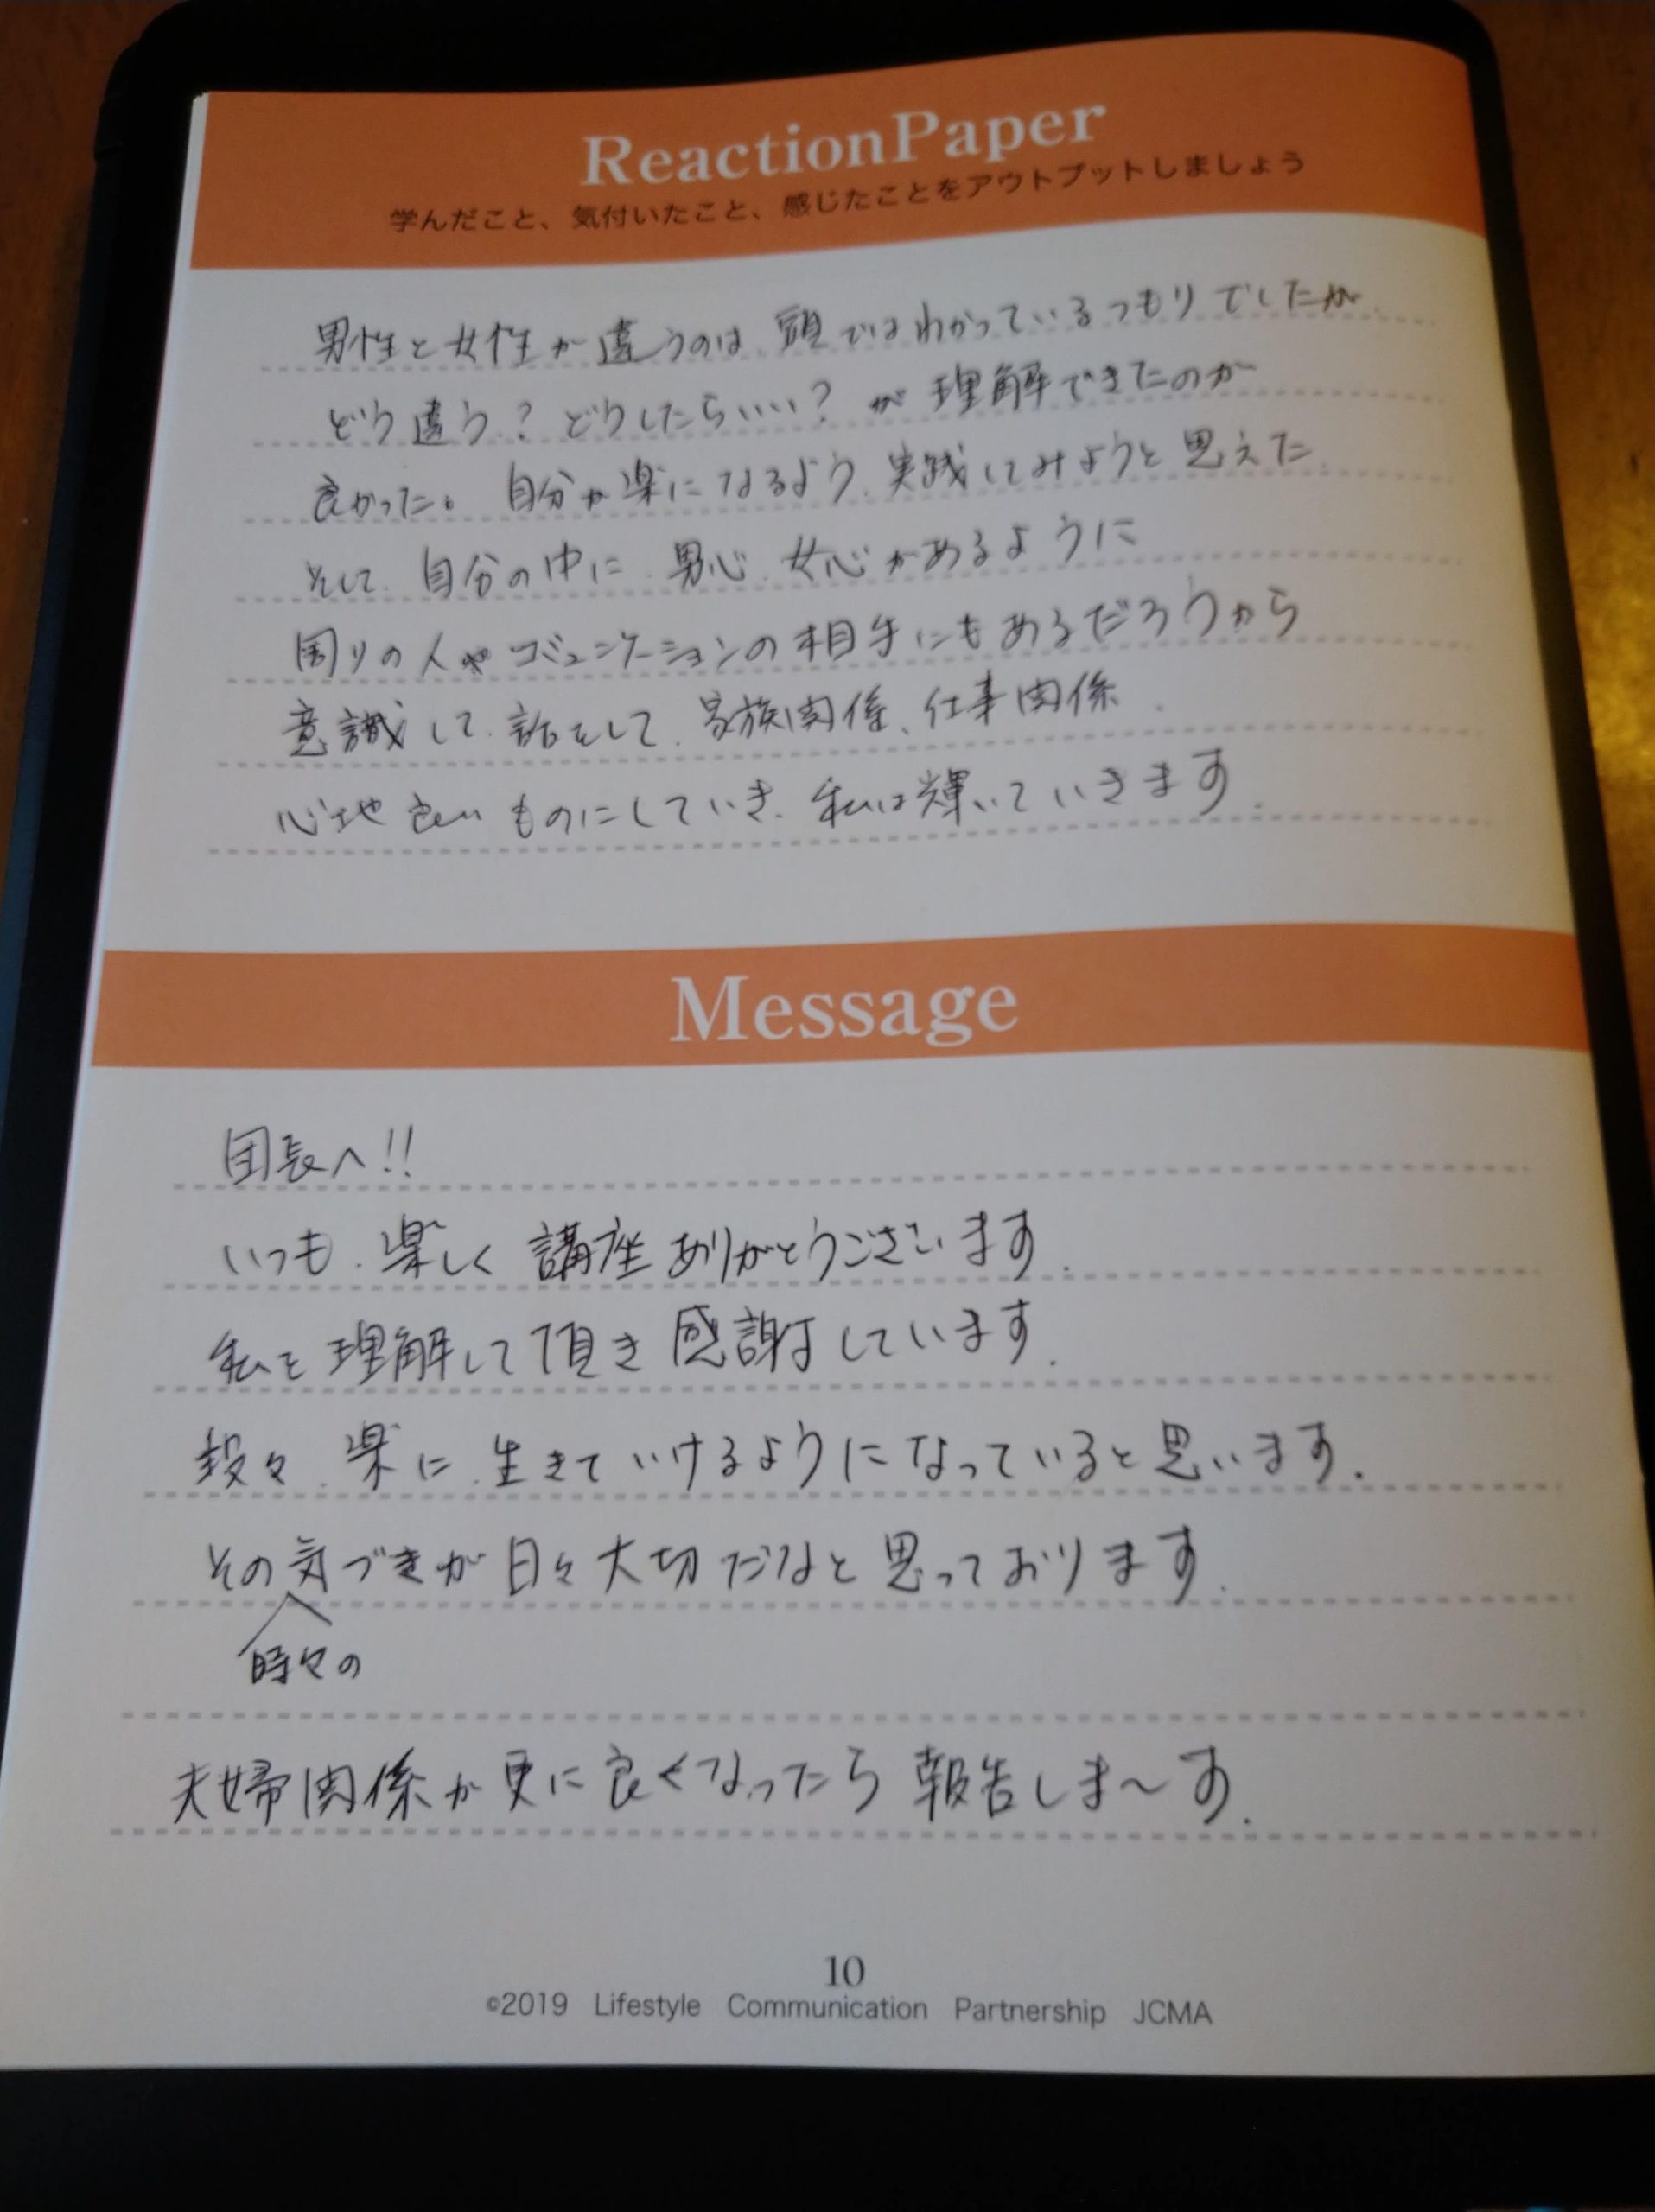 ReactionPaper
学んだこと、気付いたこと、感じたことをアウトプットしましょう
男性と女性が違うのは、頭ではわかっているつもりでしたが、
どう違う？どうしたらいい？が理解できたのが
良かった。自分が楽になるよう、実践してみようと思えた。
そして、自分の中に、男心、女心があるように
周りの人やコミュニケーションの相手にもあるだろうから
意識して、話をして、家族関係、仕事関係、
心地良いものにしていき、私は輝いていきます。
Message
団長へ!!
いつも、楽しく講座ありがとうございます。
私を理解して頂き感謝しています。
段々、楽に、生きていけるようになっていると思います。
その気づきが日々大切だなと思っております。
時々の
夫婦関係が更に良くなったら報告しま～す。
10
©2019 Lifestyle Communication Partnership JCMA